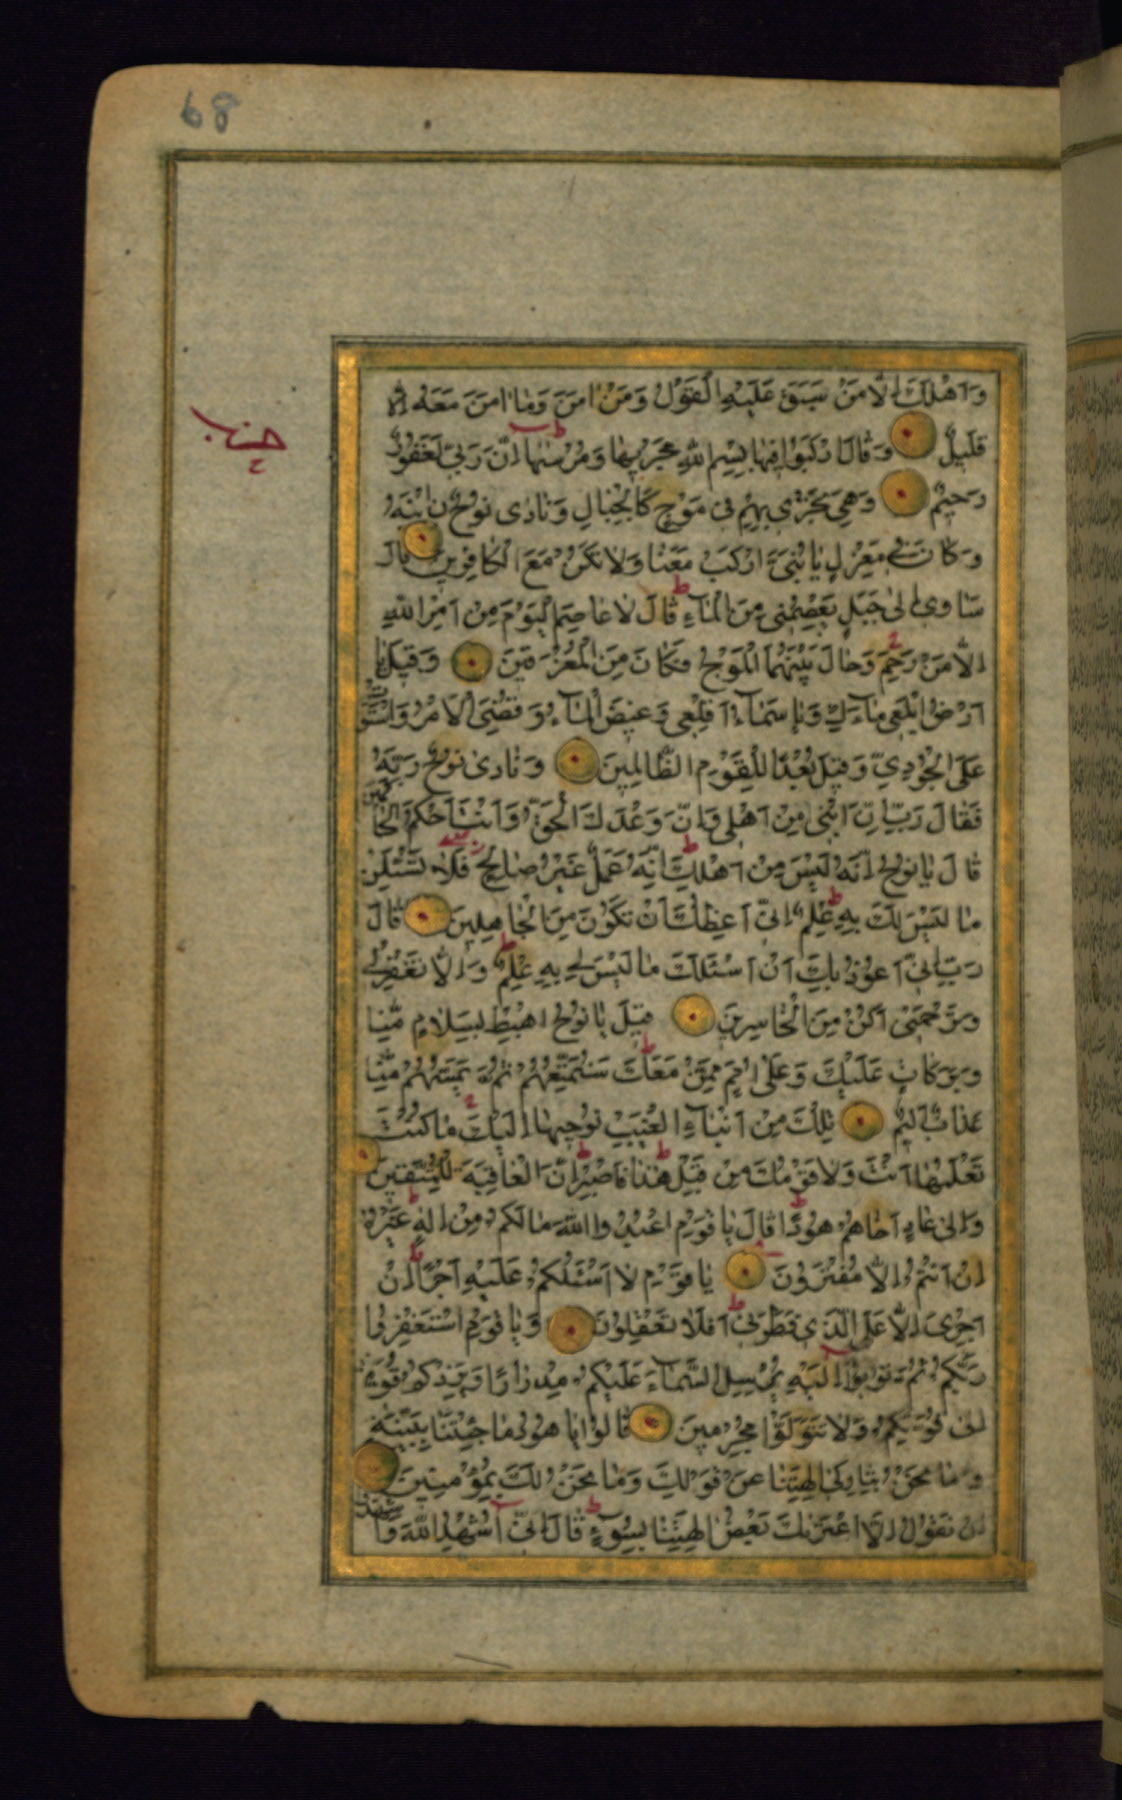 68
وَاَهْلَكَ اِلَّا مَنْ سَبَقَ عَلَيْهِ الْقَوْلُ وَمَنْ اٰمَنَ وَمٰا اٰمَنَ مَعَهُ اِلّٰا
حزب
قَليلٌ وَقٰالَ ارْكَبُوا فيهٰا بِسْمِ اللّٰهِ مَجْريٰهٰا وَمُرْسٰيهٰا اِنَّ رَبّى لَغَفُورٌ
رَحيمٌ وَهِىَ تَجْرى بِهِمْ فى مَوْجٍ كَالْجِبٰالِ وَنٰادٰى نُوحٌ نِ ابْنَهُ
وَكٰانَ فى مَعْزِلٍ يٰا بُنَىَّ ارْكَبْ مَعَنٰا وَلٰا تَكُنْ مَعَ الْكٰافِرينَ قٰالَ
سَاٰوى اِلٰى جَبَلٍ يَعْصِمُنى مِنَ الْمٰاۤءِ قٰالَ لٰا عٰاصِمَ الْيَوْمَ مِنْ اَمْرِ اللّٰهِ
اِلّٰا مَنْ رَحِمَ وَحٰالَ بَيْنَهُمَا الْمَوْجُ فَكٰانَ مِنَ الْمُغْرَقينَ وَقيلَ يٰا
اَرْضُ ابْلَعى مٰاۤءَكِ وَيٰا سَمٰاۤءُ اَقْلِعى وَغيضَ الْمٰاۤءُ وَقُضِىَ الْاَمْرُ وَاسْتَوَتْ
عَلَى الْجُودِىِّ وَقيلَ بُعْدًا لِلْقَوْمِ الظّٰالِمينَ وَنٰادٰى نُوحٌ رَبَّهُ
فَقٰالَ رَبِّ اِنَّ ابْنى مِنْ اَهْلى وَاِنَّ وَعْدَكَ الْحَقُّ وَاَنْتَ اَحْكَمُ الْحٰاكِمينَ
قٰالَ يٰا نُوحُ اِنَّهُ لَيْسَ مِنْ اَهْلِكَ اِنَّهُ عَمَلٌ غَيْرُ صٰالِحٍ فَلٰا تَسْئَلْنِ
مٰا لَيْسَ لَكَ بِهِ عِلْمٌ اِنّى اَعِظُكَ اَنْ تَكُونَ مِنَ الْجٰاهِلينَ قٰالَ
رَبِّ اِنّى اَعُوذُ بِكَ اَنْ اَسْئَلَكَ مٰا لَيْسَ لى بِهِ عِلْمٌ وَاِلّٰا تَغْفِرْ لى
وَتَرْحَمْنى اَكُنْ مِنَ الْخٰاسِرينَ قيلَ يٰا نُوحُ اهْبِطْ بِسَلٰامٍ مِنّٰا
وَبَرَكٰاتٍ عَلَيْكَ وَعَلٰى اُمَمٍ مِمَّنْ مَعَكَ سَنُمَتِّعُهُمْ ثُمَّ يَمَسُّهُمْ مِنّٰا
عَذٰابٌ اَليمٌ تِلْكَ مِنْ اَنْبٰاۤءِ الْغَيْبِ نُوحيهٰا اِلَيْكَ مٰا كُنْتَ
تَعْلَمُهٰا اَنْتَ وَلٰا قَوْمُكَ مِنْ قَبْلِ هٰذٰا فَاصْبِرْ اِنَّ الْعٰاقِبَةَ لِلْمُتَّقينَ
وَاِلٰى عٰادٍ اَخٰاهُمْ هُودًا قٰالَ يٰا قَوْمِ اعْبُدُوا اللّٰهَ مٰا لَكُمْ مِنْ اِلٰهٍ غَيْرُهُ
اِنْ اَنْتُمْ اِلّٰا مُفْتَرُونَ يٰا قَوْمِ لٰا اَسْئَلُكُمْ عَلَيْهِ اَجْرًا اِنْ
اَجْرِىَ اِلّٰا عَلَى الَّذى فَطَرَنى اَفَلٰا تَعْقِلُونَ وَيٰا قَوْمِ اسْتَغْفِرُوا
رَبَّكُمْ ثُمَّ تُوبُوا اِلَيْهِ يُرْسِلِ السَّمٰاۤءَ عَلَيْكُمْ مِدْرٰارًا وَيَزِدْكُمْ قُوَّةً
اِلٰى قُوَّتِكُمْ وَلٰا تَتَوَلَّوْا مُجْرِمينَ قٰالُوا يٰا هُودُ مٰا جِئْتَنٰا بِبَيِّنَةٍ
وَمٰا نَحْنُ بِتٰارِكى اٰلِهَتِنٰا عَنْ قَوْلِكَ وَمٰا نَحْنُ لَكَ بِمُؤْمِنينَ
اِنْ نَقُولُ اِلَّا اعْتَرٰيكَ بَعْضُ اٰلِهَتِنٰا بِسُوۤءٍ قٰالَ اِنّى اُشْهِدُ اللّٰهَ وَاشْهَدُوا